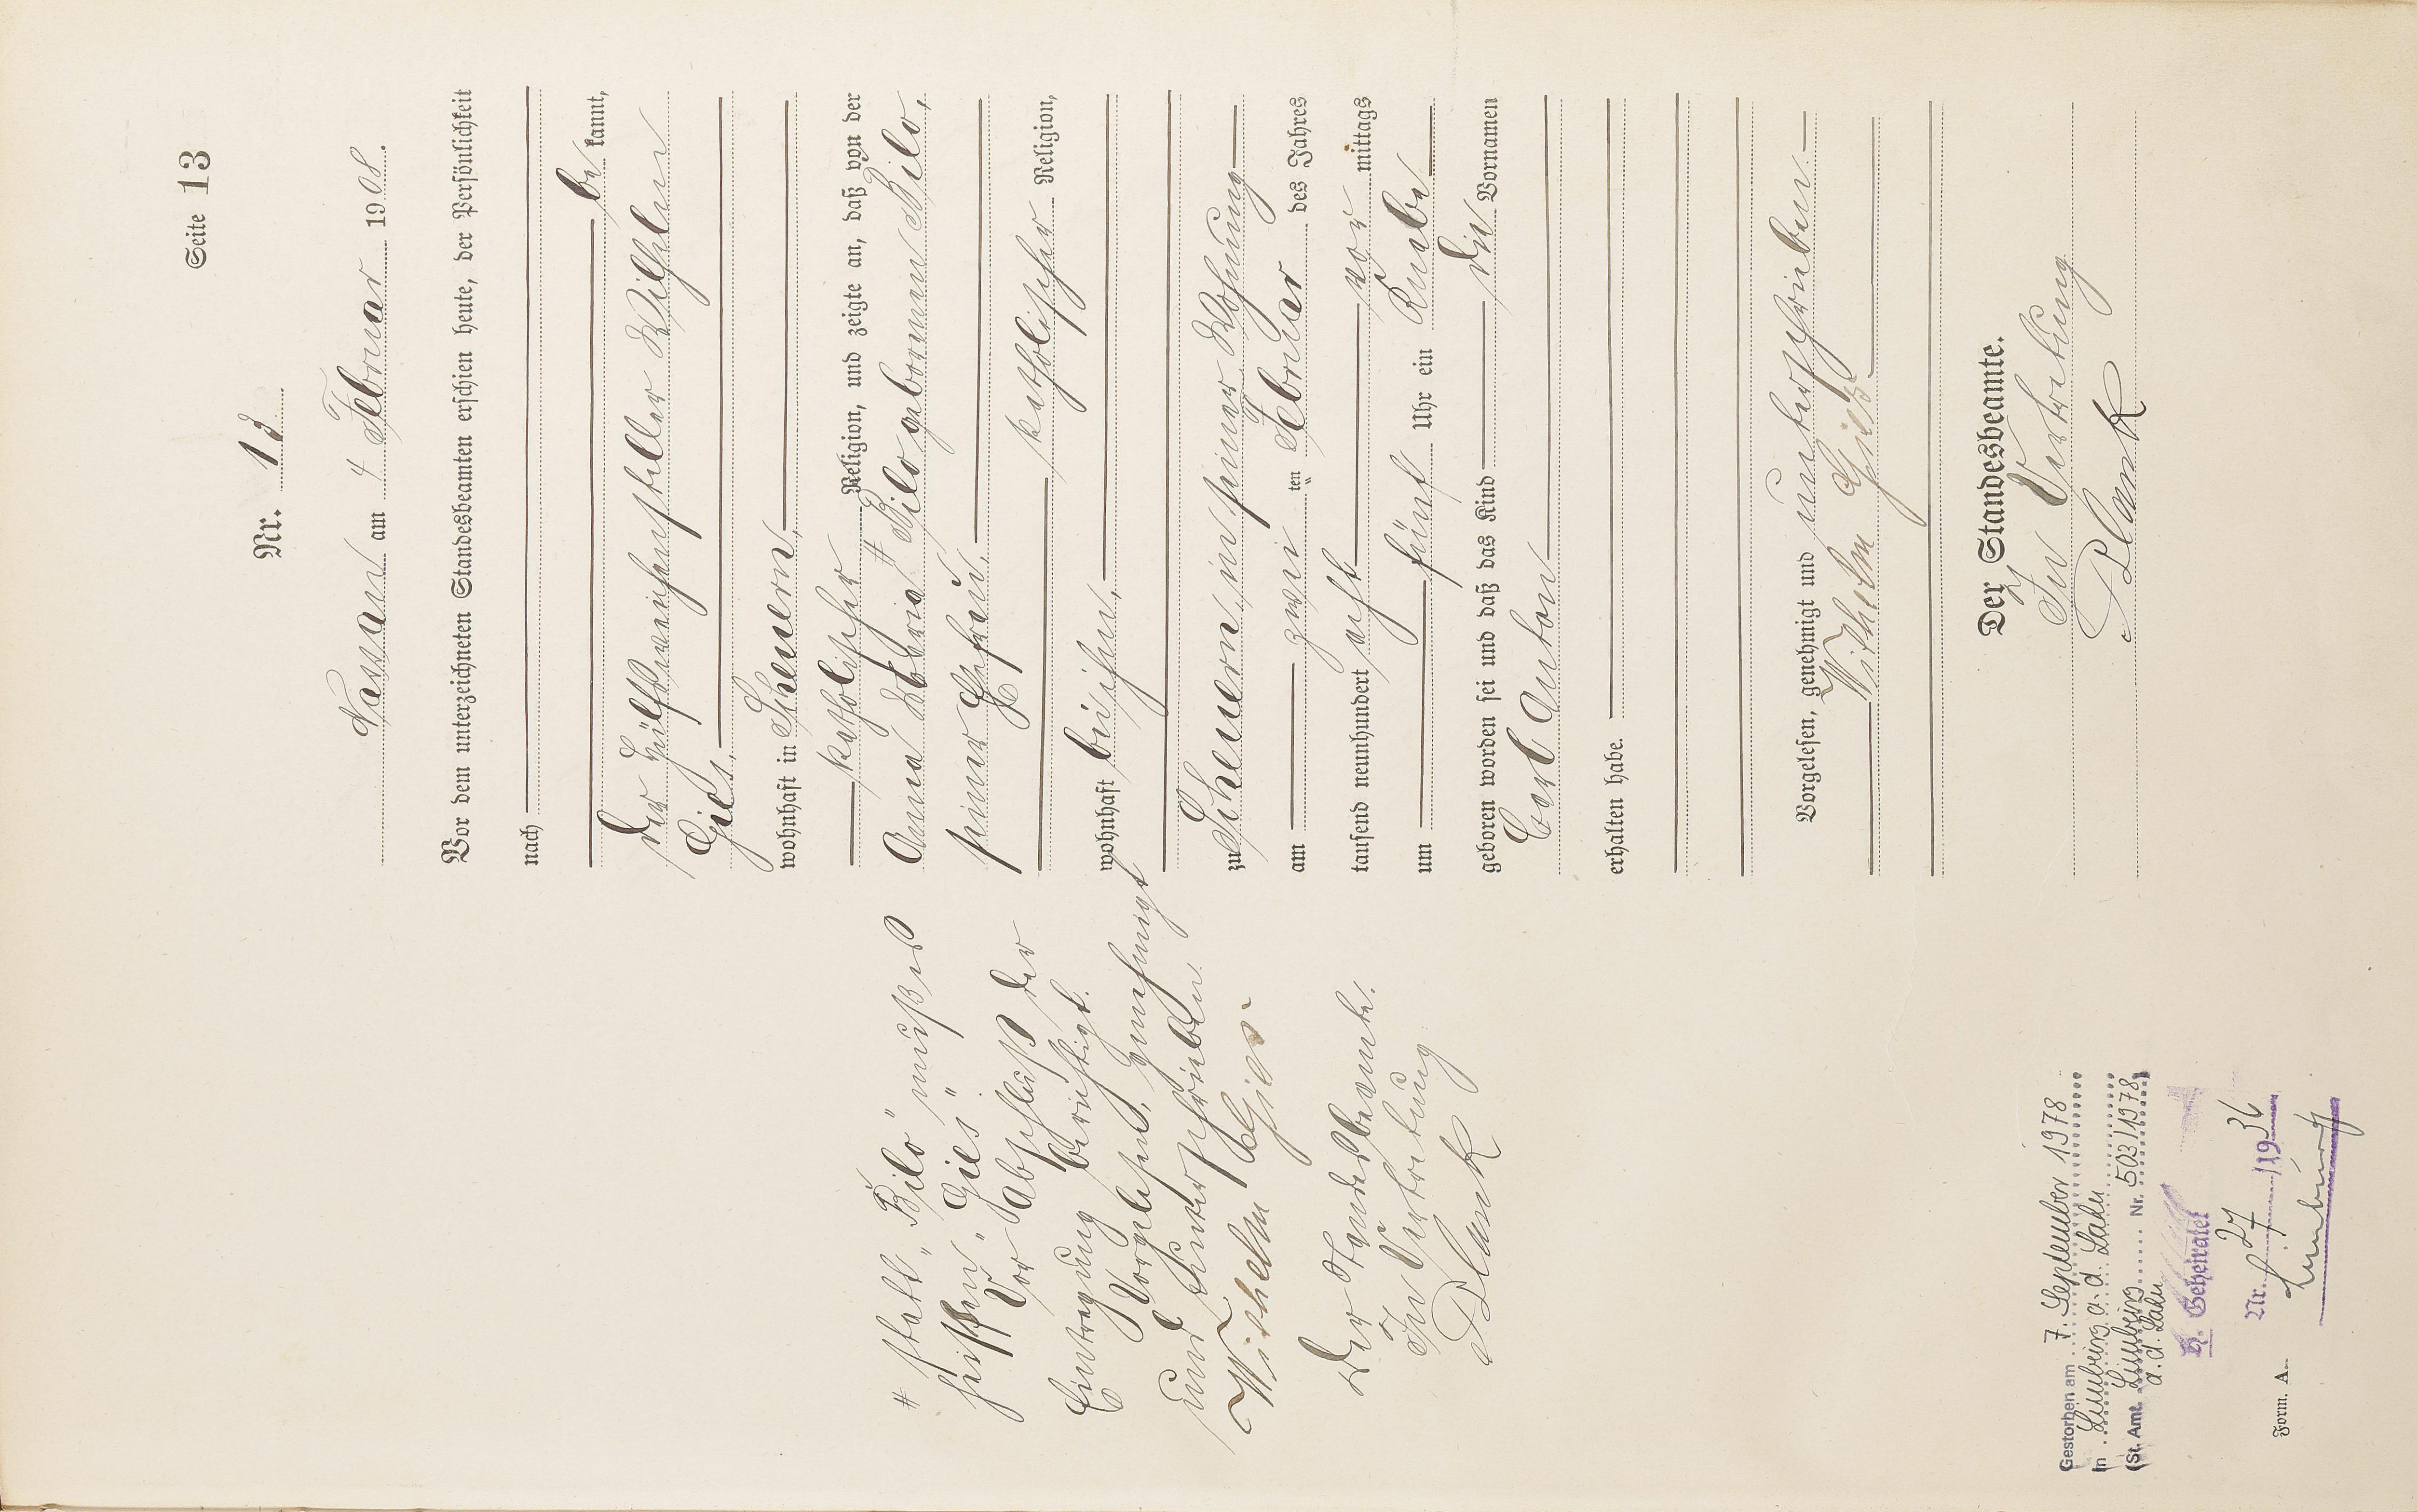 Seite 13
Nr. 13
Nassau am 4 Februar 1908.
Vor dem unterzeichneten Standesbeamten erschien heute, der Persönlichkeit
nach
be kannt,
der Hülfsweichensteller Wilhelm
Giel,
wohnhaft in Scheuern,
katholischer Religion, und zeigte an, daß von der
Anna Maria # Bilo geborenen Bilo,
seiner Ehefrau,
katholischer Religion,
wohnhaft bei ihm,
zu Scheuern, in seiner Wohnung
am zwei ten Februar des Jahres
tausend neunhundert acht vor mittags
um fünf Uhr ein Knabe
geboren worden sei und daß das Kind die Vornamen
Carl Anton
erhalten habe.
Vorgelesen, genehmigt und unterschrieben.
Wilhelm Giel
Der Standesbeamte.
In Vertretung
Plank
# statt „Bilo" muß es
heißen „Giel"
Vor Abschluß der
Eintragung berichtigt.
Vorgelesen, genehmigt
und unterschrieben.
Wilhelm Giel
Der Standesbeamte.
In Vertretung
Plank
Gestorben am 7. September 1978
in Limburg a. d. Lahn
(St. Amt. Limburg Nr. 503/1978)
a. d. Lahn
Geheiratet
Nr. 27 /1936
Limburg
Form. A.